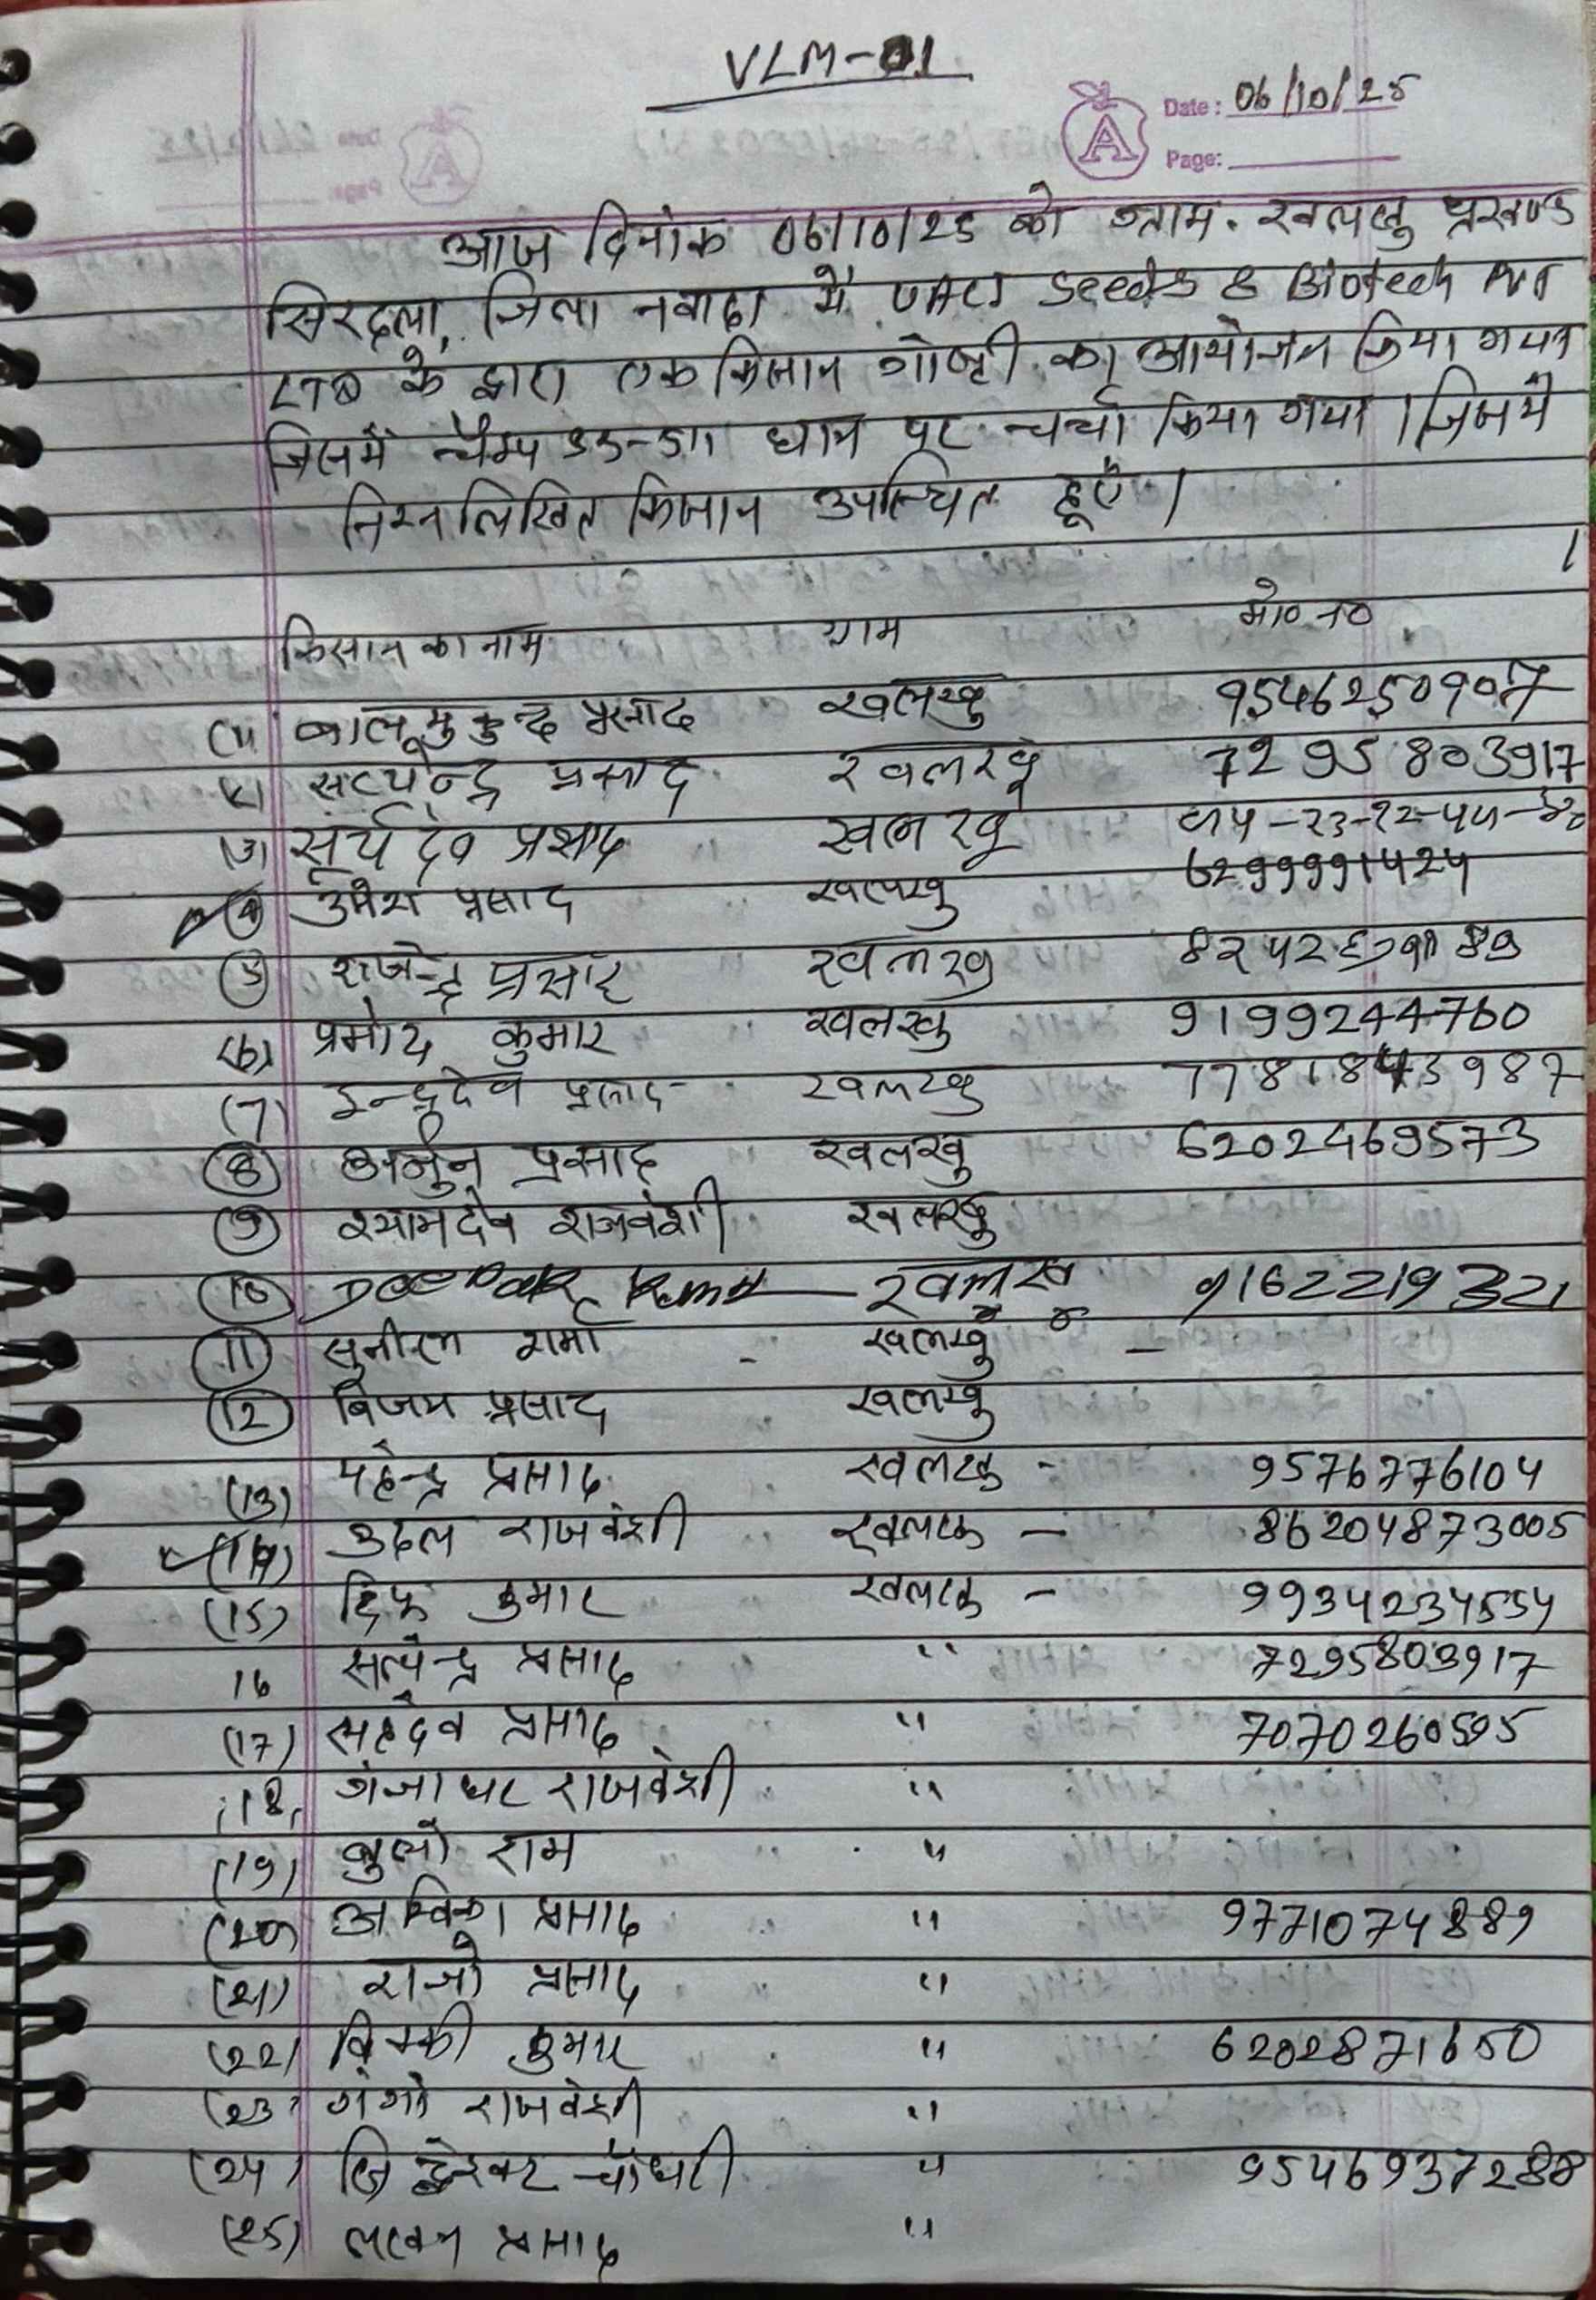 VLM-01
Date: 06/10/25
Page:
आज दिनांक 06/10/25 को ग्राम. खलखु प्रखण्ड
सिरदला, जिला नवादा में Seeds & Biotech Pvt
LTD के द्वारा एक किसान गोष्टी का आयोजन किया गया
जिसमें चैम्प धान पर चर्चा किया गया । जिसमें
निम्नलिखित किसान उपस्थित हूएं ।
किसान का नाम ग्राम मो० न०
(1) बालूमुकुन्द प्रसाद खलखु 9546250907
(2) सत्येन्द्र प्रसाद खलखु 7295803917
(3) सूर्य देव प्रसाद खलखु
(4) उमेश प्रसाद खलखु 6299991424
(5) राजेन्द्र प्रसाद खलखु
(6) प्रमोद कुमार खलखु 9199244760
(7) इन्द्रदेव प्रसाद खलखु 7781843987
(8) अर्जुन प्रसाद खलखु 6202469573
(9) श्यामदेव राजवंशी खलखु
(10) Deepak Kumar खलखु 9162219321
(11) सुनील शर्मा - खलखु -
(12) विजय प्रसाद खलखु
(13) महेन्द्र प्रसाद खलखु - 9576776104
(14) उदल राजवंशी खलखु - 86204873005
(15) कुमार खलखु - 9934234554
16 सत्येन्द्र प्रसाद " 7295803917
(17) सहदेव प्रसाद " 7070260595
(18) राजवंशी "
(19) राम "
(20) प्रसाद " 9771074889
(21) राजो प्रसाद "
(22) विक्की कुमार " 6202871650
(23) राजवंशी "
(24) चौधरी " 9546937288
(25) लखन प्रसाद "